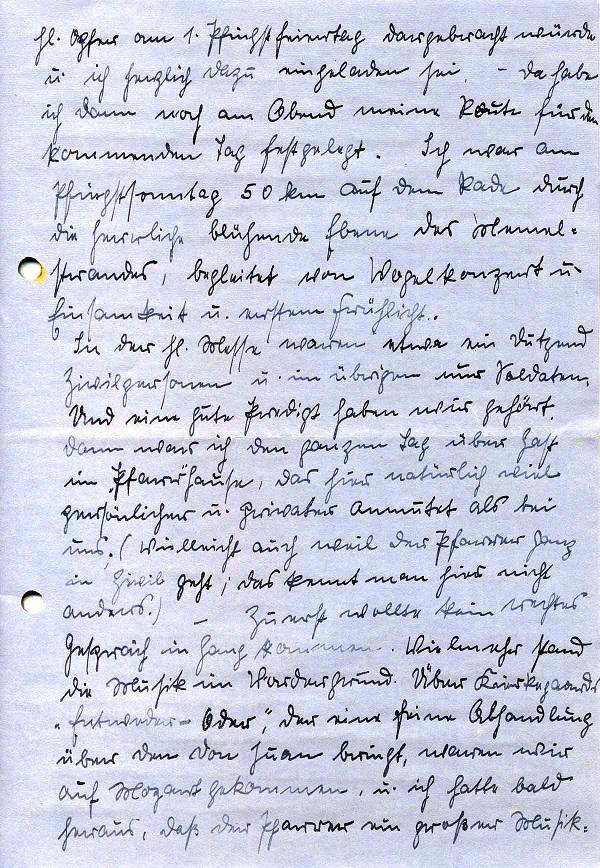 hl. Opfer am 1. Pfingstfeiertag dargebracht würde
u. ich herzlich dazu eingeladen sei. – Da habe
ich dann noch am Abend meine Route für den
kommenden Tag festgelegt. Ich war am
Pfingstsonntag 50 km auf dem Rade durch
die herrliche blühende Ebene des Memel-
strandes, begleitet von Vogelkonzert u.
Einsamkeit u. erstem Frühlicht.
In der hl. Messe waren etwa ein Dutzend
Zivilpersonen u. im übrigen nur Soldaten.
Und eine gute Predigt haben wir gehört.
Dann war ich den ganzen Tag über Gast
im Pfarrhause, das hier natürlich viel
persönlicher u. privater anmutet als bei
uns. (Vielleicht auch weil der Pfarrer ganz
in Zivil geht; das kennt man hier nicht
anders.) – Zuerst wollte kein rechtes
Gespräch in Gang kommen. Vielmehr stand
die Musik im Vordergrund. Über Kierkegaards
„Entweder – Oder“, der eine feine Abhandlung
über den Don Juan bringt, waren wir
auf Mozart gekommen, u. ich hatte bald
heraus, daß der Pfarrer ein großer Musik-